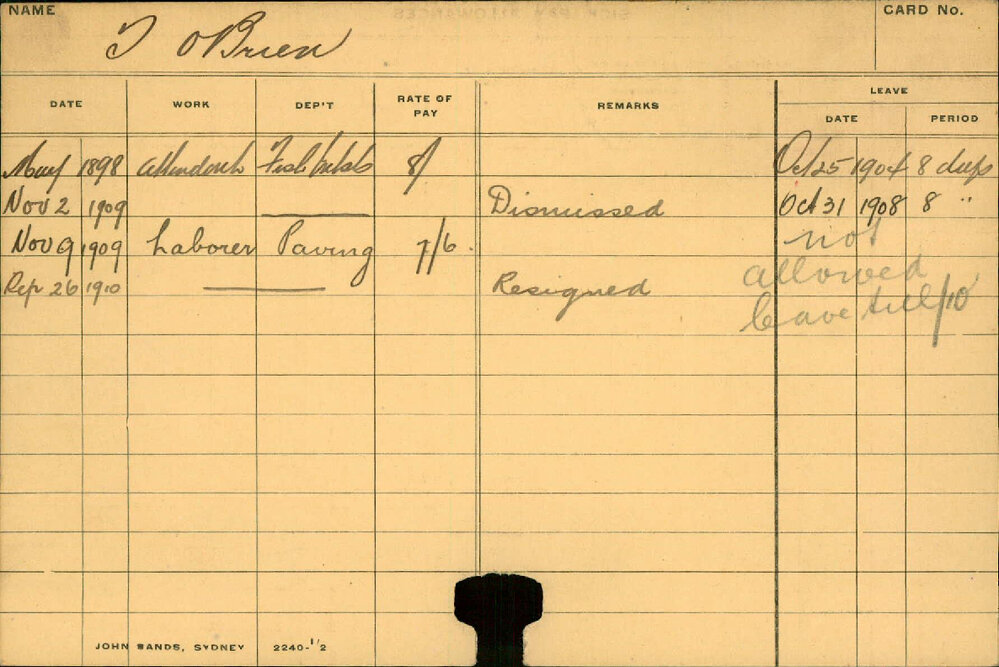 NAME
CARD No.
T OBrien
DATE WORK DEP'T RATE OF PAY REMARKS LEAVE
DATE PERIOD
May 1898 Attendant Fish 8/ Oct 25 1904 8 days
Nov 2 1909 Dismissed Oct 31 1908 8 "
Nov 9 1909 Laborer Paving 7/6 not
Sep 26 1910 Resigned allowed
leave till /10
JOHN SANDS, SYDNEY 2240-1/2